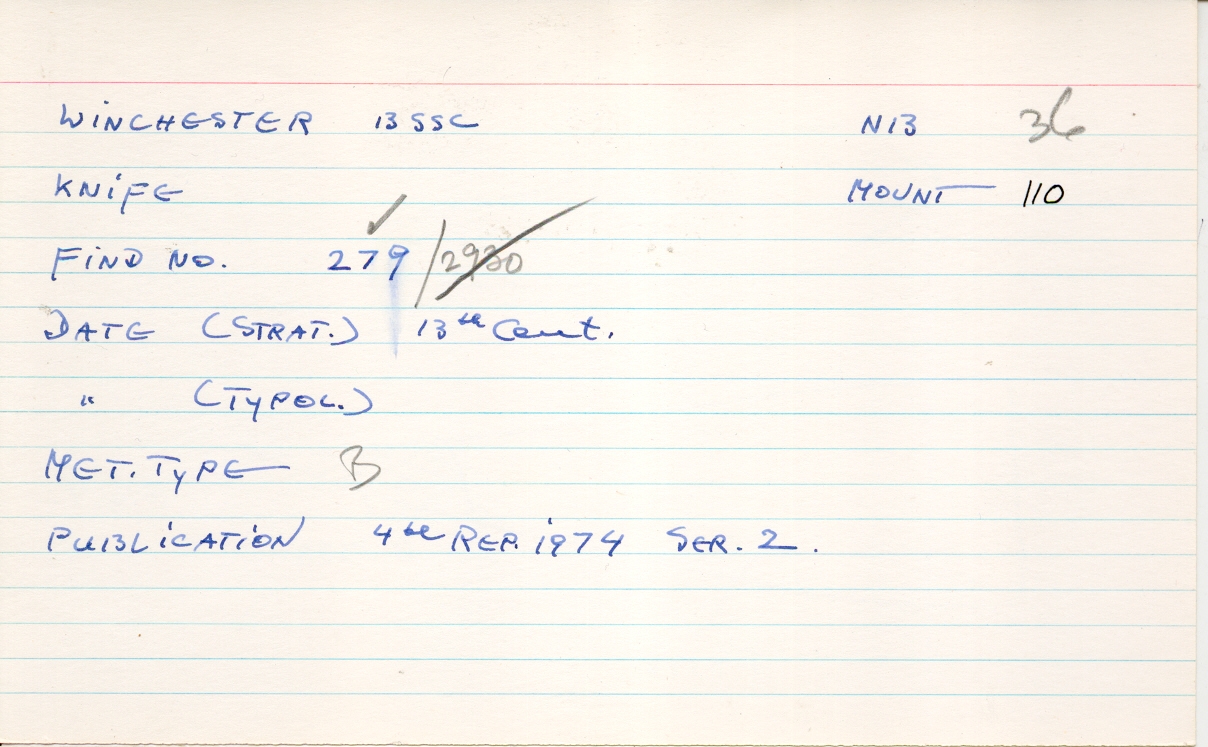 WINCHESTER 13 SSC N13 36
KNIFE MOUNT 110
FIND NO. 279 / 2930
DATE (STRAT.) 13th Cent.
" (TYPOL.)
MET. TYPE B
PUBLICATION 4th REP. 1974 SER. 2.